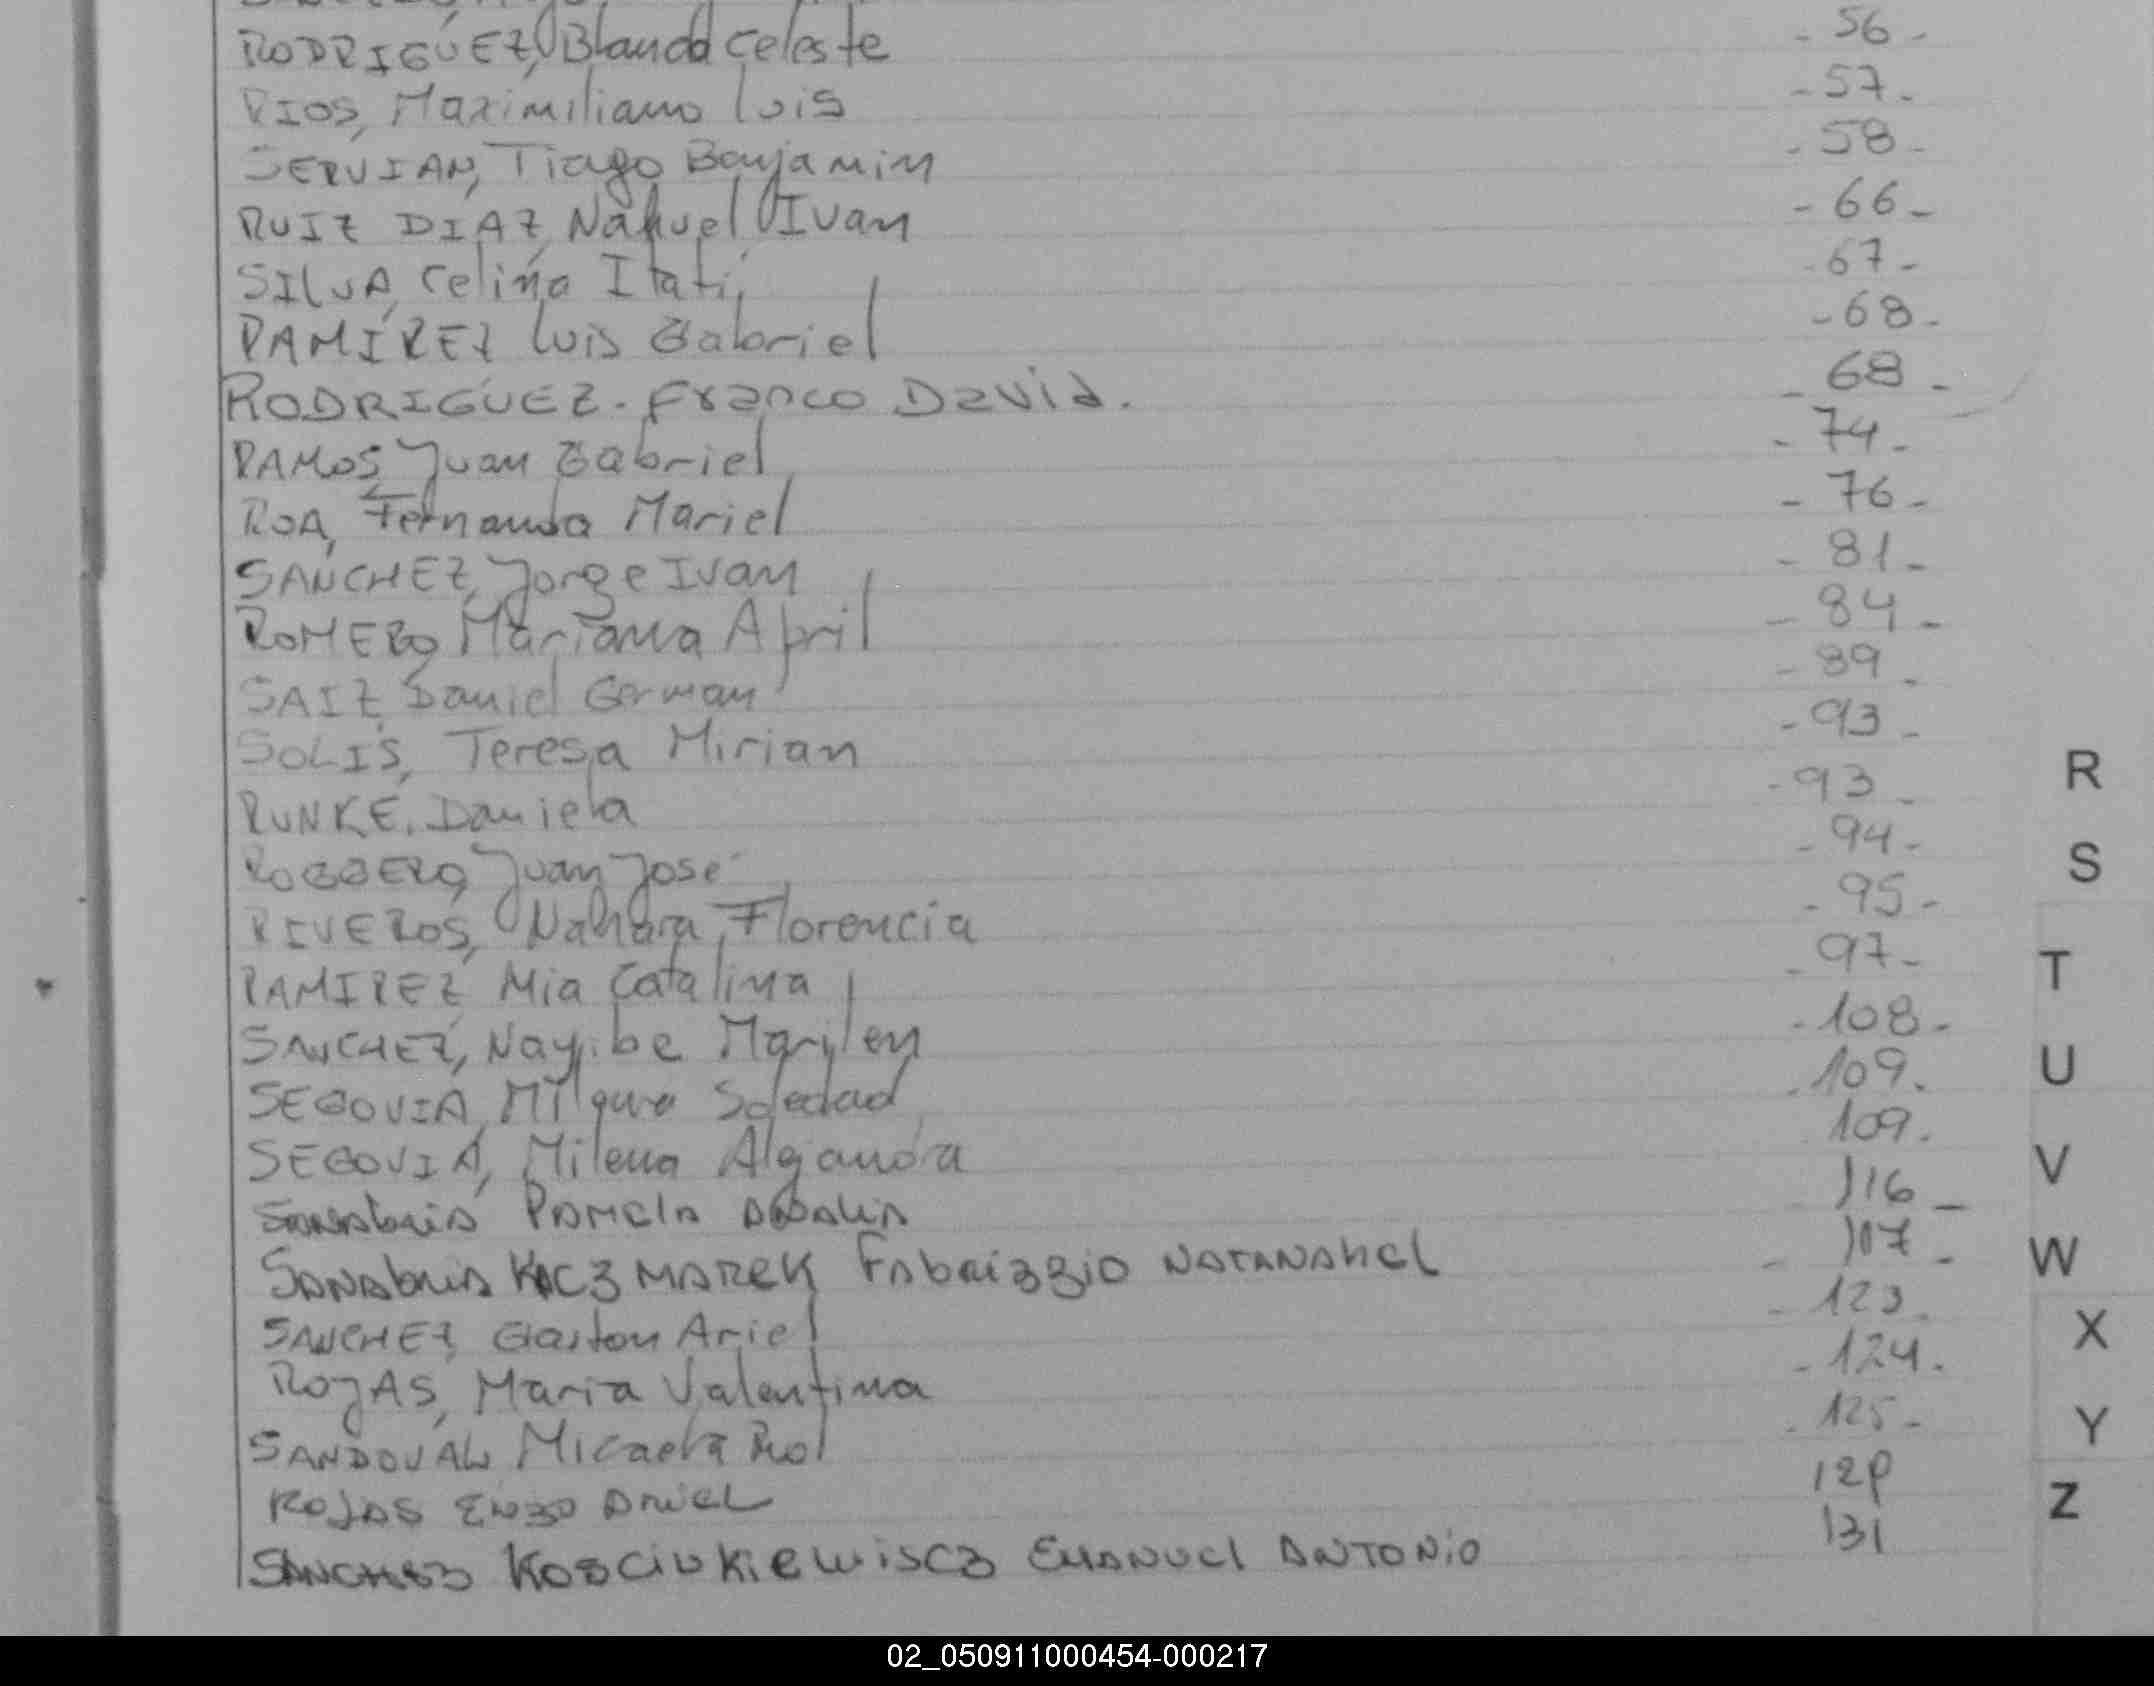 RODRIGUEZ, Blanca Celeste - 56 -
RIOS, Maximiliano Luis - 57 -
SERVIAN, Tiago Benjamin - 58 -
RUIZ DIAZ, Nahuel Ivan - 66 -
SILVA, Celina Itatí - 67 -
RAMÍREZ Luis Gabriel - 68 -
RODRIGUEZ - Franco David. - 68 -
RAMOS, Juan Gabriel - 74 -
ROA, Fernanda Mariel - 76 -
SANCHEZ, Jorge Ivan - 81 -
ROMERO, Mariana April - 84 -
SAIZ, Daniel German - 89 -
SOLIS, Teresa Mirian - 93 -
RUNKE, Daniela - 93 -
Juan José - 94 -
RIVEROS, Nahiara Florencia - 95 -
RAMIREZ, Mia Catalina - 97 -
SANCHEZ, Nayibe Marilen - 108 -
SEGOVIA, Soledad - 109 -
SEGOVIA, Milena Alejandra 109 -
Sanabria Pamela 116 -
Sanabria Kaczmarek Fabrizzio Natanahel - 117 -
SANCHEZ, Gaston Ariel - 123 -
ROJAS, Maria Valentina - 124 -
SANDOVAL, Micaela - 125 -
Rojas Enzo Ariel
Sanchez Kosciukiewiscz Emanuel Antonio 131
R
S
T
U
V
W
X
Y
Z
02_050911000454-000217